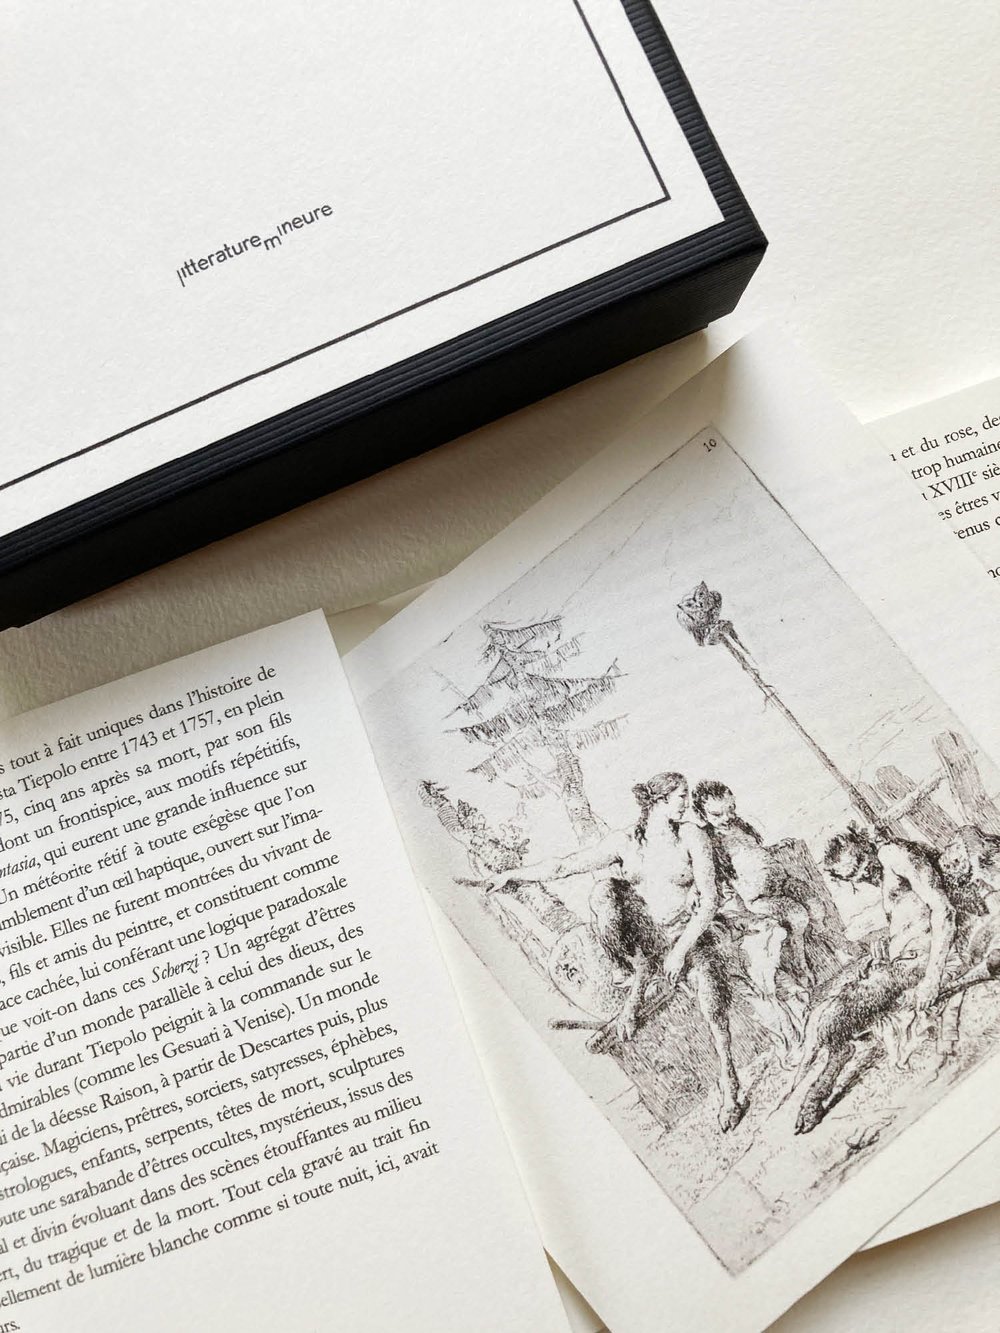 litterature mineure
10
s tout à fait uniques dans l’histoire de
sta Tiepolo entre 1743 et 1757, en plein
75, cinq ans après sa mort, par son fils
dont un frontispice, aux motifs répétitifs,
ntasia, qui eurent une grande influence sur
Un météorite rétif à toute exégèse que l’on
mblement d’un œil haptique, ouvert sur l’ima-
visible. Elles ne furent montrées du vivant de
, fils et amis du peintre, et constituent comme
ace cachée, lui conférant une logique paradoxale
ue voit-on dans ces Scherzi ? Un agrégat d’êtres
partie d’un monde parallèle à celui des dieux, des
vie durant Tiepolo peignit à la commande sur le
dmirables (comme les Gesuati à Venise). Un monde
i de la déesse Raison, à partir de Descartes puis, plus
çaise. Magiciens, prêtres, sorciers, satyresses, éphèbes,
strologues, enfants, serpents, têtes de mort, sculptures
oute une sarabande d’êtres occultes, mystérieux, issus des
al et divin évoluant dans des scènes étouffantes au milieu
ert, du tragique et de la mort. Tout cela gravé au trait fin
sellement de lumière blanche comme si toute nuit, ici, avait
urs.
et du rose, de
trop humaine
XVIIIe siè
es êtres v
enus